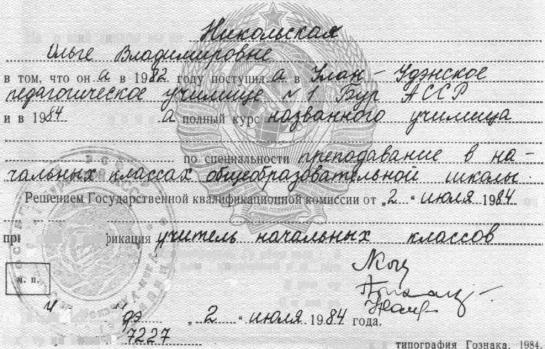 Никольская
Ольге Владимировне
в том, что он а в 1982 году поступил а в Улан-Удэнское
педагогическое училище №1 Бур АССР
и в 1984 а полный курс названного училища
по специальности преподавание в на-
чальных классах общеобразовательной школы.
Решением Государственной квалификационной комиссии от „2“ июля 1984.
при фикация учитель начальных классов
м. п.
„2“ июля 1984 года.
7227
типография Гознака. 1984.